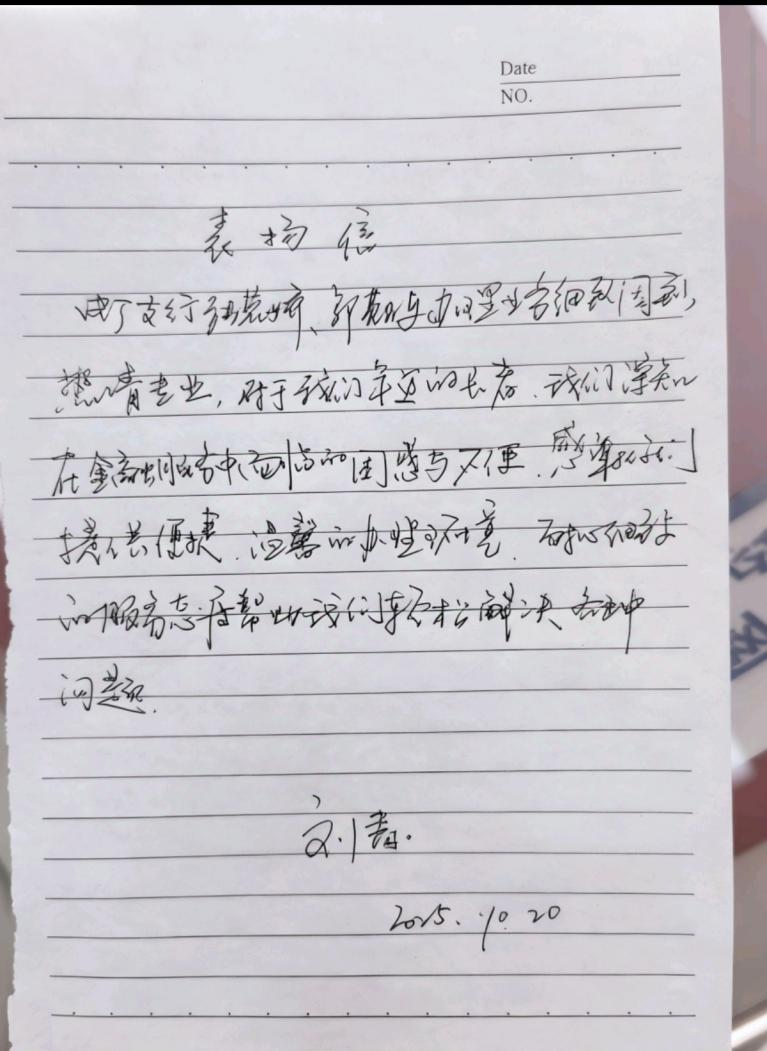 Date
NO.
表扬信
支行 办理业务细致周到,
热情专业,对于我们年迈的长者.我们深知
在金融服务中面临的困惑与不便.感谢 我们
提供便捷.温馨的办理环境.耐心细致
的服务态度帮助我们轻松解决各种
问题.
刘青.
2025.10.20